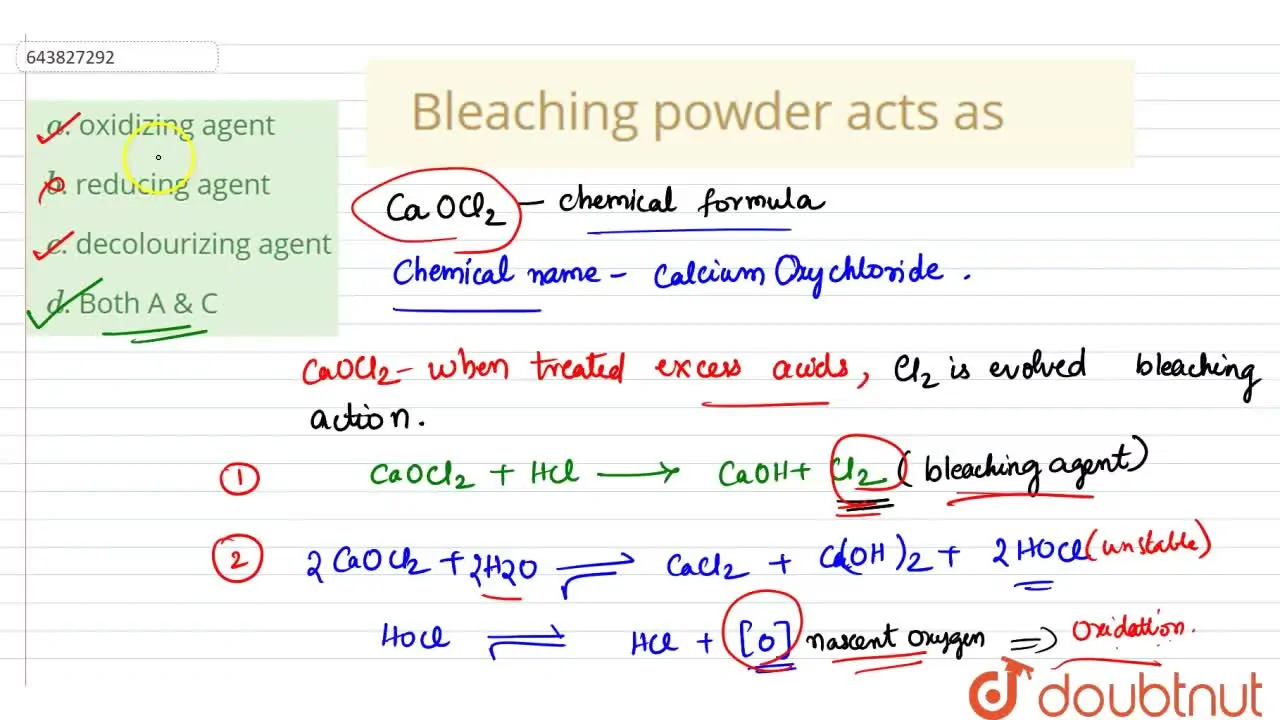 643827292
Bleaching powder acts as
a. oxidizing agent
b. reducing agent
c. decolourizing agent
d. Both A & C
CaOCl2 - chemical formula
Chemical name - Calcium Oxychloride.
CaOCl2 - when treated excess acids, Cl2 is evolved bleaching
action.
1 CaOCl2 + HCl ⟶ CaOH + Cl2 (bleaching agent)
2 2CaOCl2 + 2H2O ⇌ CaCl2 + Ca(OH)2 + 2HOCl (unstable)
HOCl ⇌ HCl + [O] nascent oxygen ⇒ Oxidation.
doubtnut